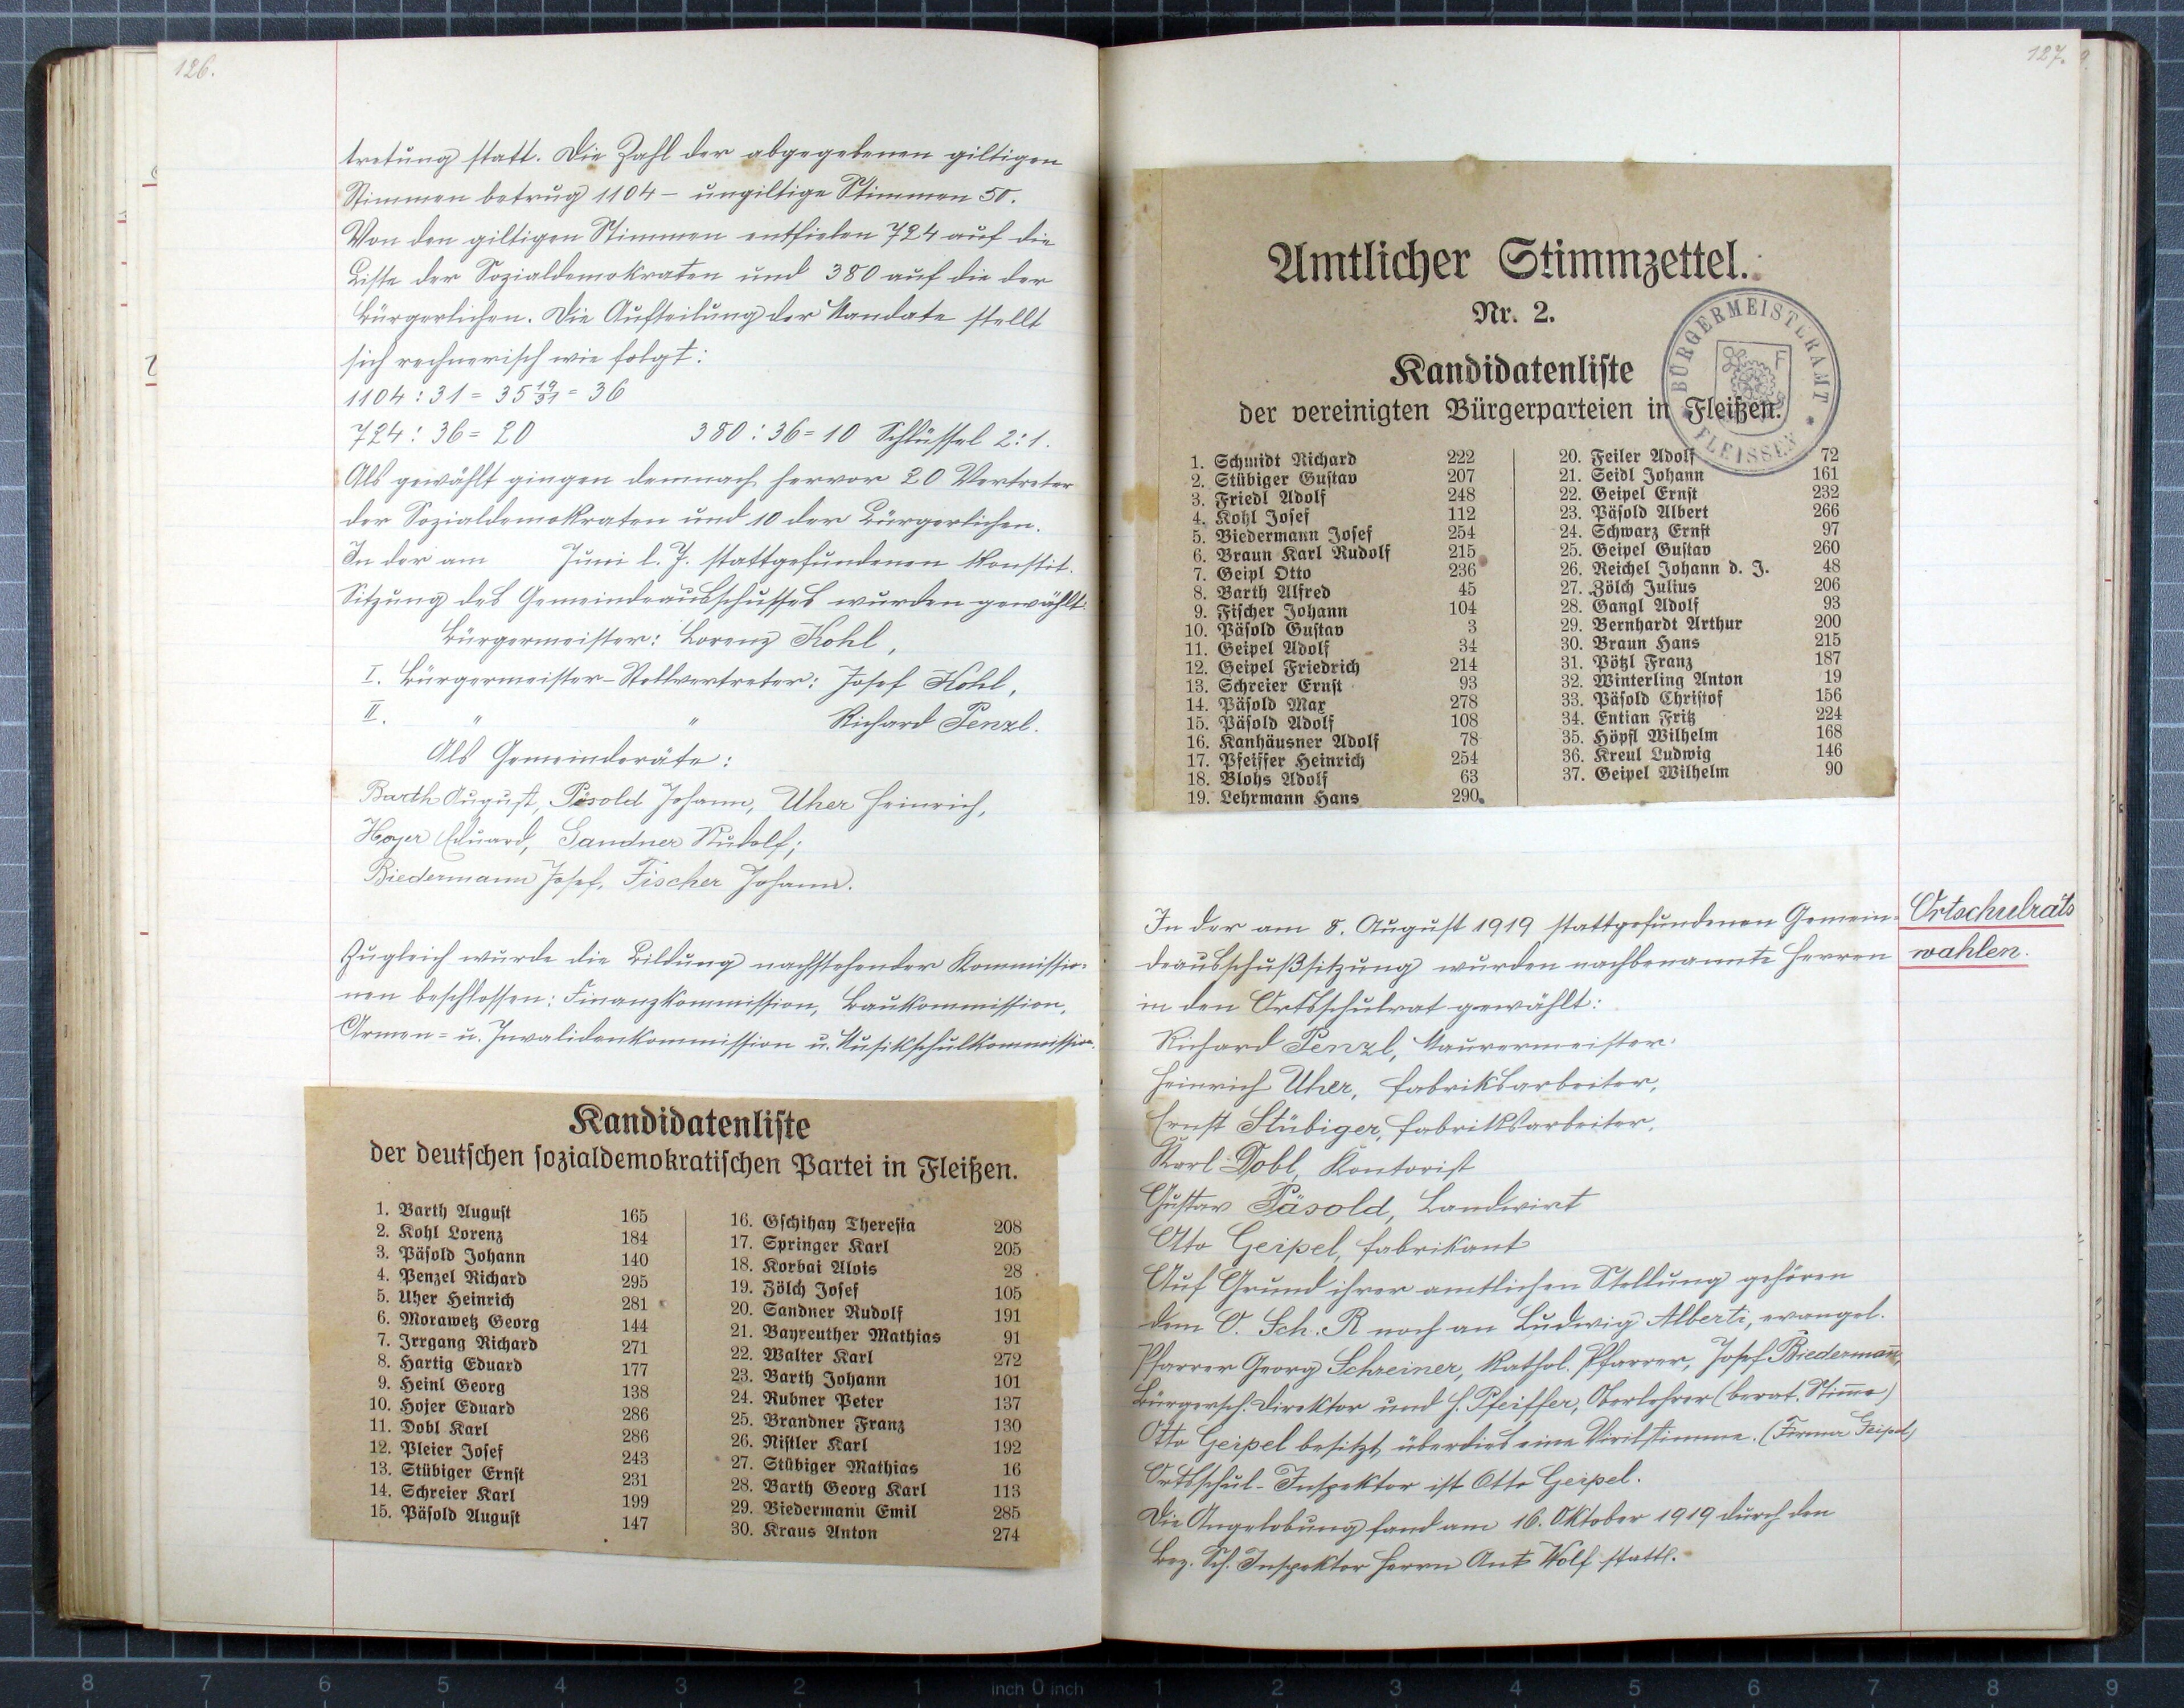 126.
tretung statt. Die Zahl der abgegebenen giltigen
Stimmen betrug 1104 – ungiltige Stimmen 50.
Von den giltigen Stimmen entfielen 724 auf die
Liste der Sozialdemokraten und 380 auf die der
Bürgerlichen. Die Aufteilung der Mandate stellt
sich rechnerisch wie folgt:
1104 : 31 = 35 19/31 = 36
724 : 36 = 20 380 : 36 = 10 Schlüssel 2 : 1.
Als gewählt gingen demnach hervor 20 Vertreter
der Sozialdemokraten und 10 der Bürgerlichen.
In der am Juni l. J. stattgefundenen konstit.
Sitzung des Gemeindeausschusses wurden gewählt:
Bürgermeister: Lorenz Kohl,
I. Bürgermeister-Stellvertreter: Josef Kohl,
II. " " Richard Penzl.
Als Gemeinderäte:
Barth August, Päsold Johann, Uher Heinrich,
Hojer Eduard, Sandner Rudolf;
Biedermann Josef, Fischer Johann.
Zugleich wurde die Bildung nachstehender Kommissio-
nen beschlossen: Finanzkommission, Baukommission,
Armen- u. Invalidenkommission u. Musikschulkommission.
Kandidatenliste
der deutschen sozialdemokratischen Partei in Fleißen.
1. Barth August 165
2. Kohl Lorenz 184
3. Päsold Johann 140
4. Penzel Richard 295
5. Uher Heinrich 281
6. Morawetz Georg 144
7. Irrgang Richard 271
8. Hartig Eduard 177
9. Heinl Georg 138
10. Hojer Eduard 286
11. Dobl Karl 286
12. Pleier Josef 243
13. Stübiger Ernst 231
14. Schreier Karl 199
15. Päsold August 147
16. Gschihay Theresia 208
17. Springer Karl 205
18. Korbai Alois 28
19. Zölch Josef 105
20. Sandner Rudolf 191
21. Bayreuther Mathias 91
22. Walter Karl 272
23. Barth Johann 101
24. Rubner Peter 137
25. Brandner Franz 130
26. Nistler Karl 192
27. Stübiger Mathias 16
28. Barth Georg Karl 113
29. Biedermann Emil 285
30. Kraus Anton 274
127.
Amtlicher Stimmzettel.
Nr. 2.
Kandidatenliste
der vereinigten Bürgerparteien in Fleißen.
BÜRGERMEISTERAMT * FLEISSEN *
F
1. Schmidt Richard 222
2. Stübiger Gustav 207
3. Friedl Adolf 248
4. Kohl Josef 112
5. Biedermann Josef 254
6. Braun Karl Rudolf 215
7. Geipl Otto 236
8. Barth Alfred 45
9. Fischer Johann 104
10. Päsold Gustav 3
11. Geipel Adolf 34
12. Geipel Friedrich 214
13. Schreier Ernst 93
14. Päsold Max 278
15. Päsold Adolf 108
16. Kanhäusner Adolf 78
17. Pfeiffer Heinrich 254
18. Blohs Adolf 63
19. Lehrmann Hans 290
20. Feiler Adolf 72
21. Seidl Johann 161
22. Geipel Ernst 232
23. Päsold Albert 266
24. Schwarz Ernst 97
25. Geipel Gustav 260
26. Reichel Johann d. J. 48
27. Zölch Julius 206
28. Gangl Adolf 93
29. Bernhardt Arthur 200
30. Braun Hans 215
31. Pötzl Franz 187
32. Winterling Anton 19
33. Päsold Christof 156
34. Entian Fritz 224
35. Höpfl Wilhelm 168
36. Kreul Ludwig 146
37. Geipel Wilhelm 90
Ortschulrats
wahlen.
In der am 8. August 1919 stattgefundenen Gemein-
deausschußsitzung wurden nachbenannte Herren
in den Ortsschulrat gewählt:
Richard Penzl, Maurermeister
Heinrich Uher, Fabriksarbeiter,
Ernst Stübiger, Fabriksarbeiter,
Karl Dobl, Kontorist
Gustav Päsold, Landwirt
Otto Geipel, Fabrikant
Auf Grund ihrer amtlichen Stellung gehören
dem O. Sch. R noch an Ludwig Alberti, evangel.
Pfarrer Georg Schreiner, kathol. Pfarrer, Josef Biedermann,
Bürgersch. Direktor und H. Pfeiffer, Oberlehrer (berat. Stimme)
Otto Geipel besitzt überdies eine Virilstimme. (Firma Geipel)
Ortsschul-Inspektor ist Otto Geipel.
Die Angelobung fand am 16. Oktober 1919 durch den
Bez. Sch. Inspektor Herrn Ant Wolf statt.
8 7 6 5 4 3 2 1 inch 0 inch 1 2 3 4 5 6 7 8 9